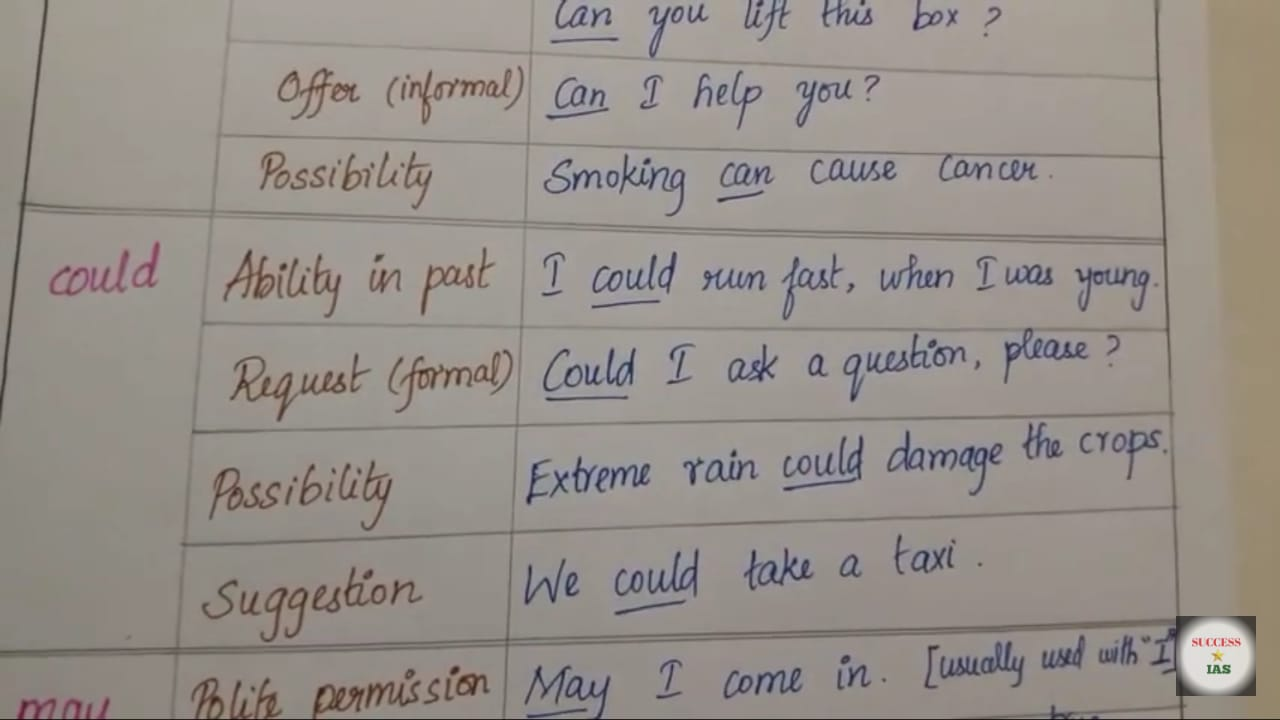 Can you lift this box ?
Offer (informal) Can I help you?
Possibility Smoking can cause cancer.
could Ability in past I could run fast, when I was young.
Request (formal) Could I ask a question, please ?
Possibility Extreme rain could damage the crops.
Suggestion We could take a taxi .
may Polite permission May I come in. [usually used with "I"]
SUCCESS
IAS